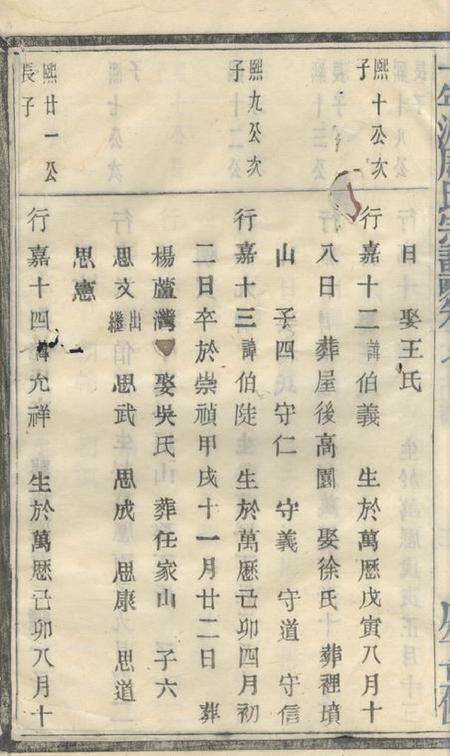 氏宗譜卷
日 娶王氏
熙十公次
子
行嘉十二諱伯義 生於萬歷戊寅八月十
八日 葬屋後高園 娶徐氏 葬裡墳
山 子四 守仁 守義 守道 守信
熙九公次
子
行嘉十三諱伯陡 生於萬歷己卯四月初
二日卒於崇禎甲戌十一月廿二日 葬
楊蘆灣 娶吳氏 葬任家山 子六
思文出繼伯 思武 思成 思康 思道
思憲
熙廿一公
長子
行嘉十四諱允祥 生於萬歷己卯八月十